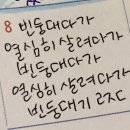 8 빈둥대다가
열심히 살려다가
빈둥대다가
열심히 살려다가
빈둥대기 로지